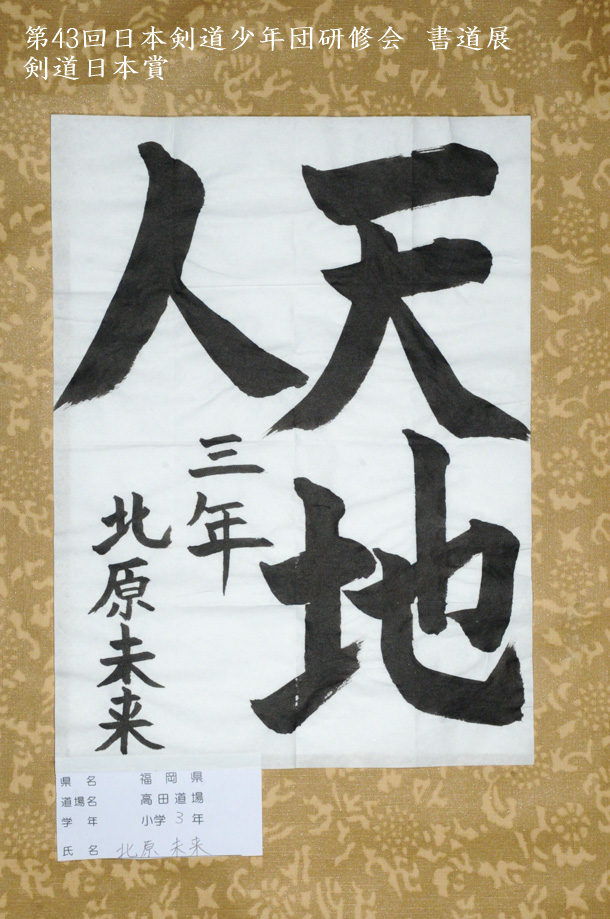 第43回日本剣道少年団研修会　書道展
剣道日本賞
天地
人
三年
北原未来
県名　福岡県
道場名　高田道場
学年　小学3年
氏名　北原 未来